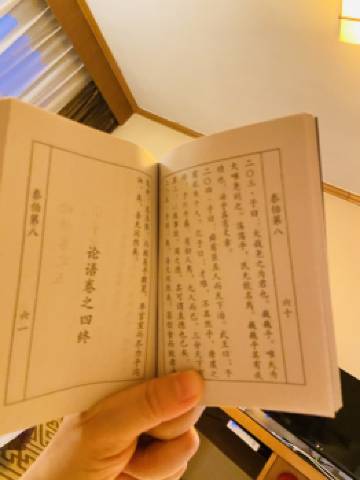 泰伯第八 六十
二〇三、子曰：大哉尧之为君也。巍巍乎，唯天为
大唯尧则之。荡荡乎，民无能名焉。巍巍乎其有成
功也，焕乎其有文章。
二〇四、舜有臣五人而天下治。武王曰：予
有乱臣十人。孔子曰：才难，不其然乎，唐虞之
际，于斯为盛，有妇人焉，九人而已。三分天下
有其二，以服事殷。周之德，其可谓至德也已矣。
而致美乎黻冕，卑宫室而尽力乎沟
洫。禹，吾无间然矣。
论语卷之四终
泰伯第八 六一